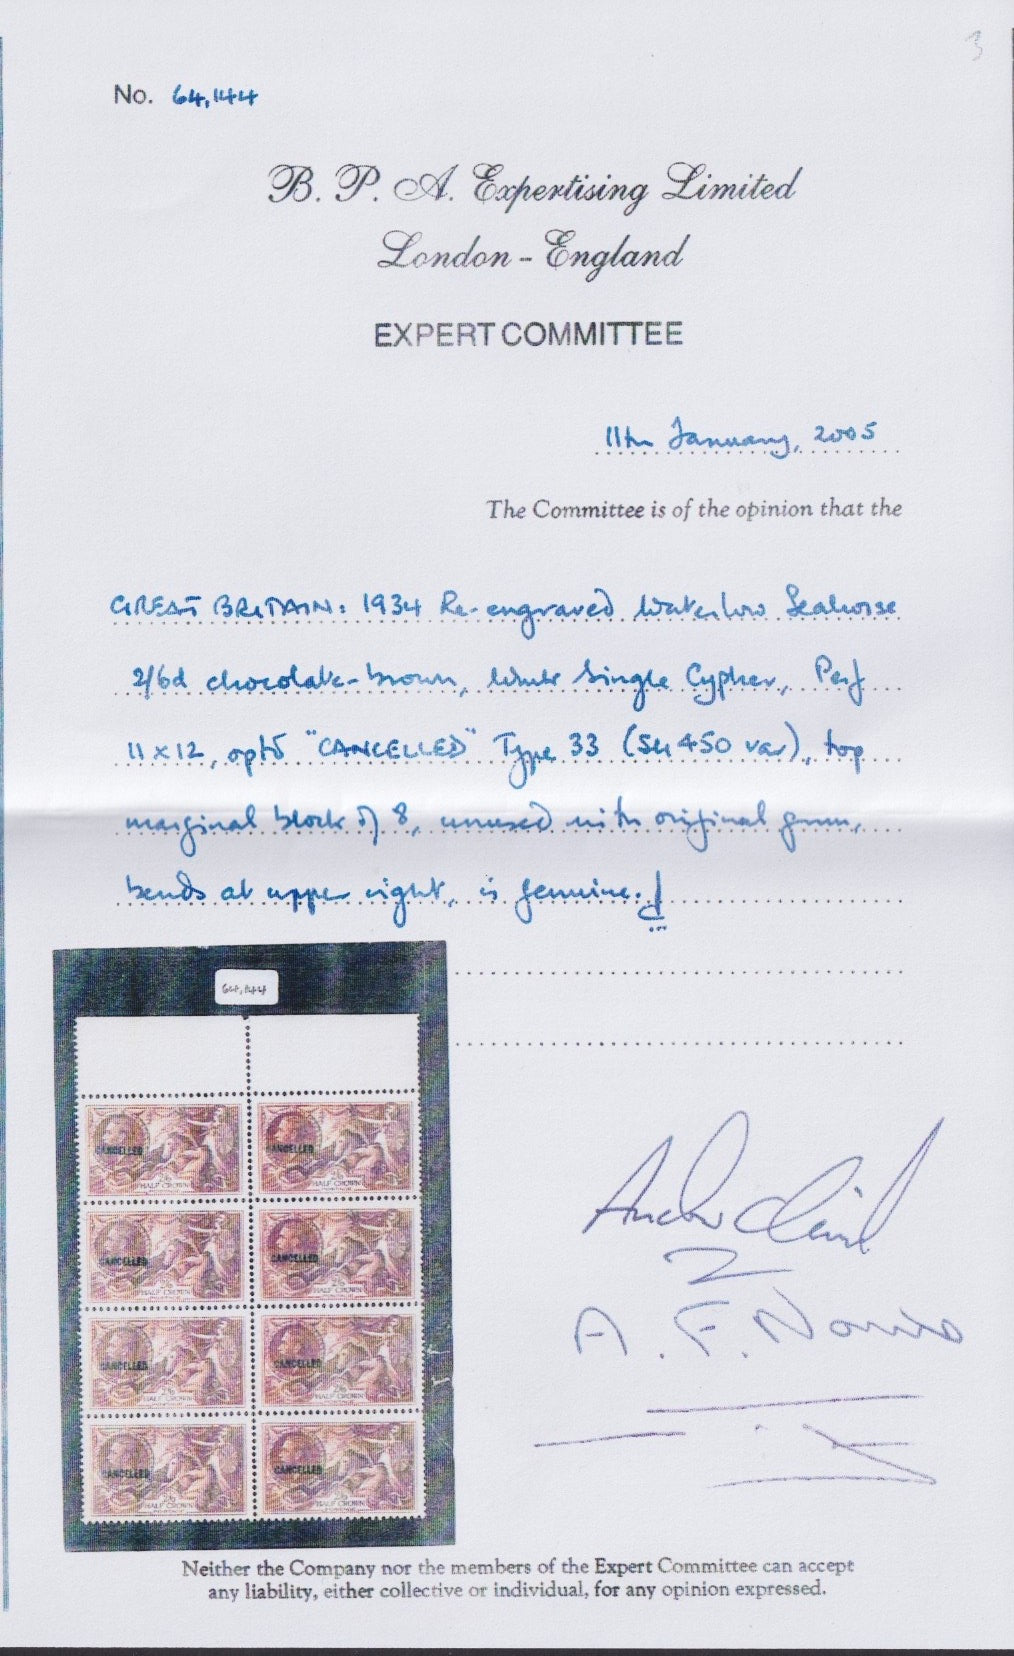 3
No. 64,144
B. P. A. Expertising Limited
London - England
EXPERT COMMITTEE
11th January, 2005
The Committee is of the opinion that the
GREAT BRITAIN: 1934 Re-engraved Waterlow Seahorse
2/6d chocolate-brown, wmk Single Cypher, Perf
11 x 12, optd "CANCELLED" Type 33 (SG 450 var), top
marginal block of 8, unused with original gum,
bends at upper right, is genuine.
64,144
CANCELLED CANCELLED
HALF CROWN HALF CROWN
CANCELLED CANCELLED
HALF CROWN HALF CROWN
CANCELLED CANCELLED
HALF CROWN HALF CROWN
CANCELLED CANCELLED
HALF CROWN HALF CROWN
A. F. Norris
Neither the Company nor the members of the Expert Committee can accept
any liability, either collective or individual, for any opinion expressed.